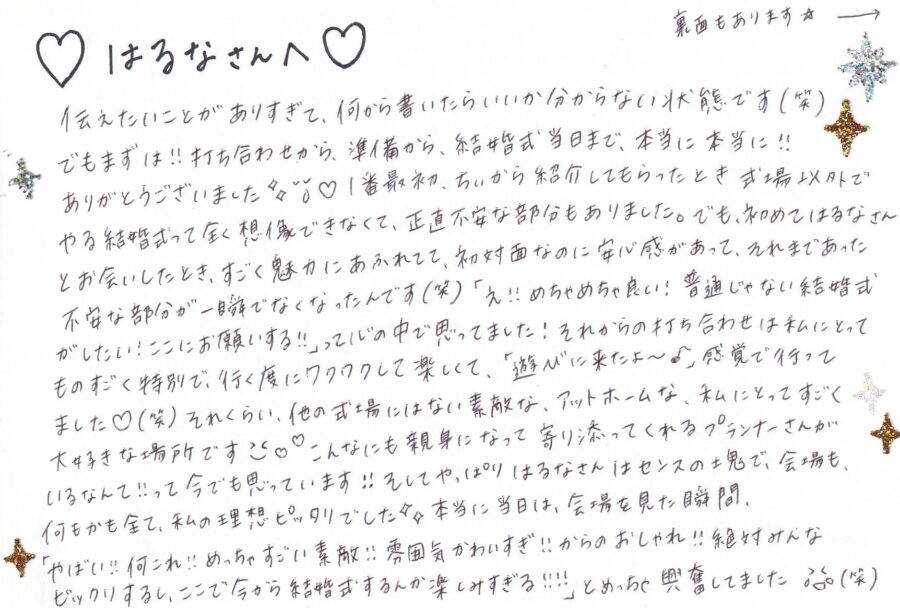 裏面もあります☆ →
♡はるなさんへ♡
伝えたいことがありすぎて、何から書いたらいいか分からない状態です(笑)
でもまずは!!打ち合わせから、準備から、結婚式当日まで、本当に本当に!!
ありがとうございました♡1番最初、ちぃから紹介してもらったとき式場以外で
やる結婚式って全く想像できなくて、正直不安な部分もありました。でも、初めてはるなさん
とお会いしたとき、すごく魅力にあふれてて、初対面なのに安心感があって、それまであった
不安な部分が一瞬でなくなったんです(笑)「え!!めちゃめちゃ良い!普通じゃない結婚式
がしたい!ここにお願いする!!」って心の中で思ってました!それからの打ち合わせは私にとって
ものすごく特別で、行く度にワクワクして楽しくて、「遊びに来たよ〜♪」感覚で行って
ました♡(笑)それくらい、他の式場にはない素敵な、アットホームな、私にとってすごく
大好きな場所です♡こんなにも親身になって寄り添ってくれるプランナーさんが
いるなんて!!って今でも思っています!!そしてやっぱりはるなさんはセンスの塊で、会場も、
何もかも全て、私の理想ピッタリでした 本当に当日は、会場を見た瞬間、
「やばい!!何これ!!めっちゃすごい素敵!!雰囲気かわいすぎ!!からのおしゃれ!!絶対みんな
ビックリするし、ここで今から結婚式するんか楽しみすぎる!!!!」とめっちゃ興奮してました(笑)